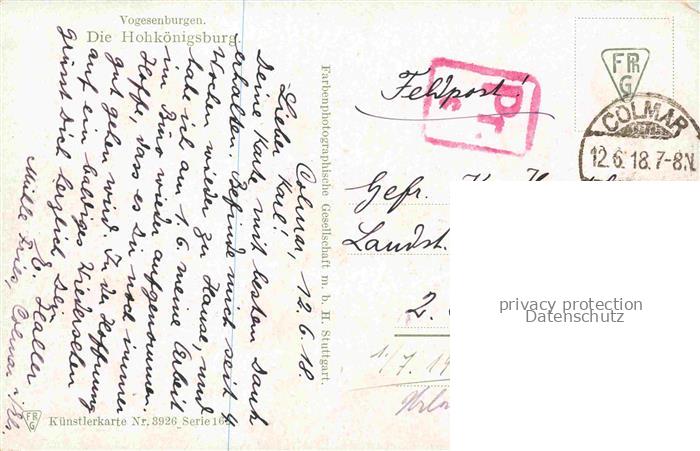 Vogesenburgen.
Die Hohkönigsburg.
Colmar, 12.6.18.
Lieber Karl!
Deine Karte mit besten Dank
erhalten. Befinde mich seit 4
Wochen wieder zu Hause, und
habe ich am 1.6 meine Arbeit
im Büro wieder aufgenommen.
Hoffe, dass es Du noch immer
gut gehen wird. In der Hoffnung
auf ein baldiges Wiedersehen
grüsst Dich herzlich Dein
E. Haller
Colmar i/Els.
FR
G
Künstlerkarte Nr. 3926 Serie 16
Farbenphotographische Gesellschaft m. b. H. Stuttgart.
Feldpost!
FPH
G
COLMAR
12.6.18.7-8N.
Gefr. K.
Landst.
2.
1/7.19
privacy protection
Datenschutz